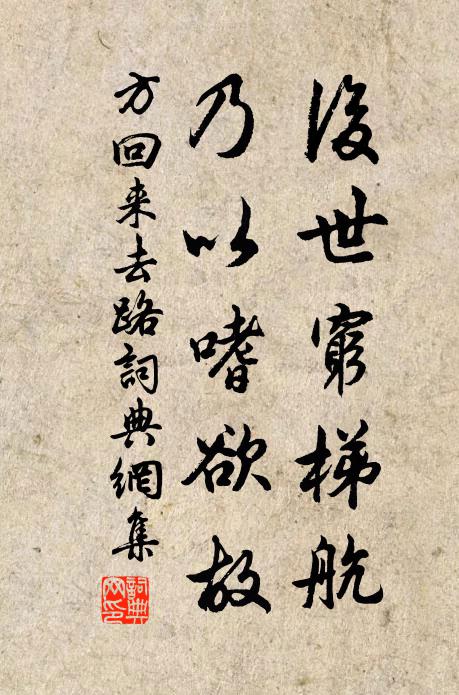 後世窮梯航
乃以嗜欲故
方回来去路詞典網集
詞典网印